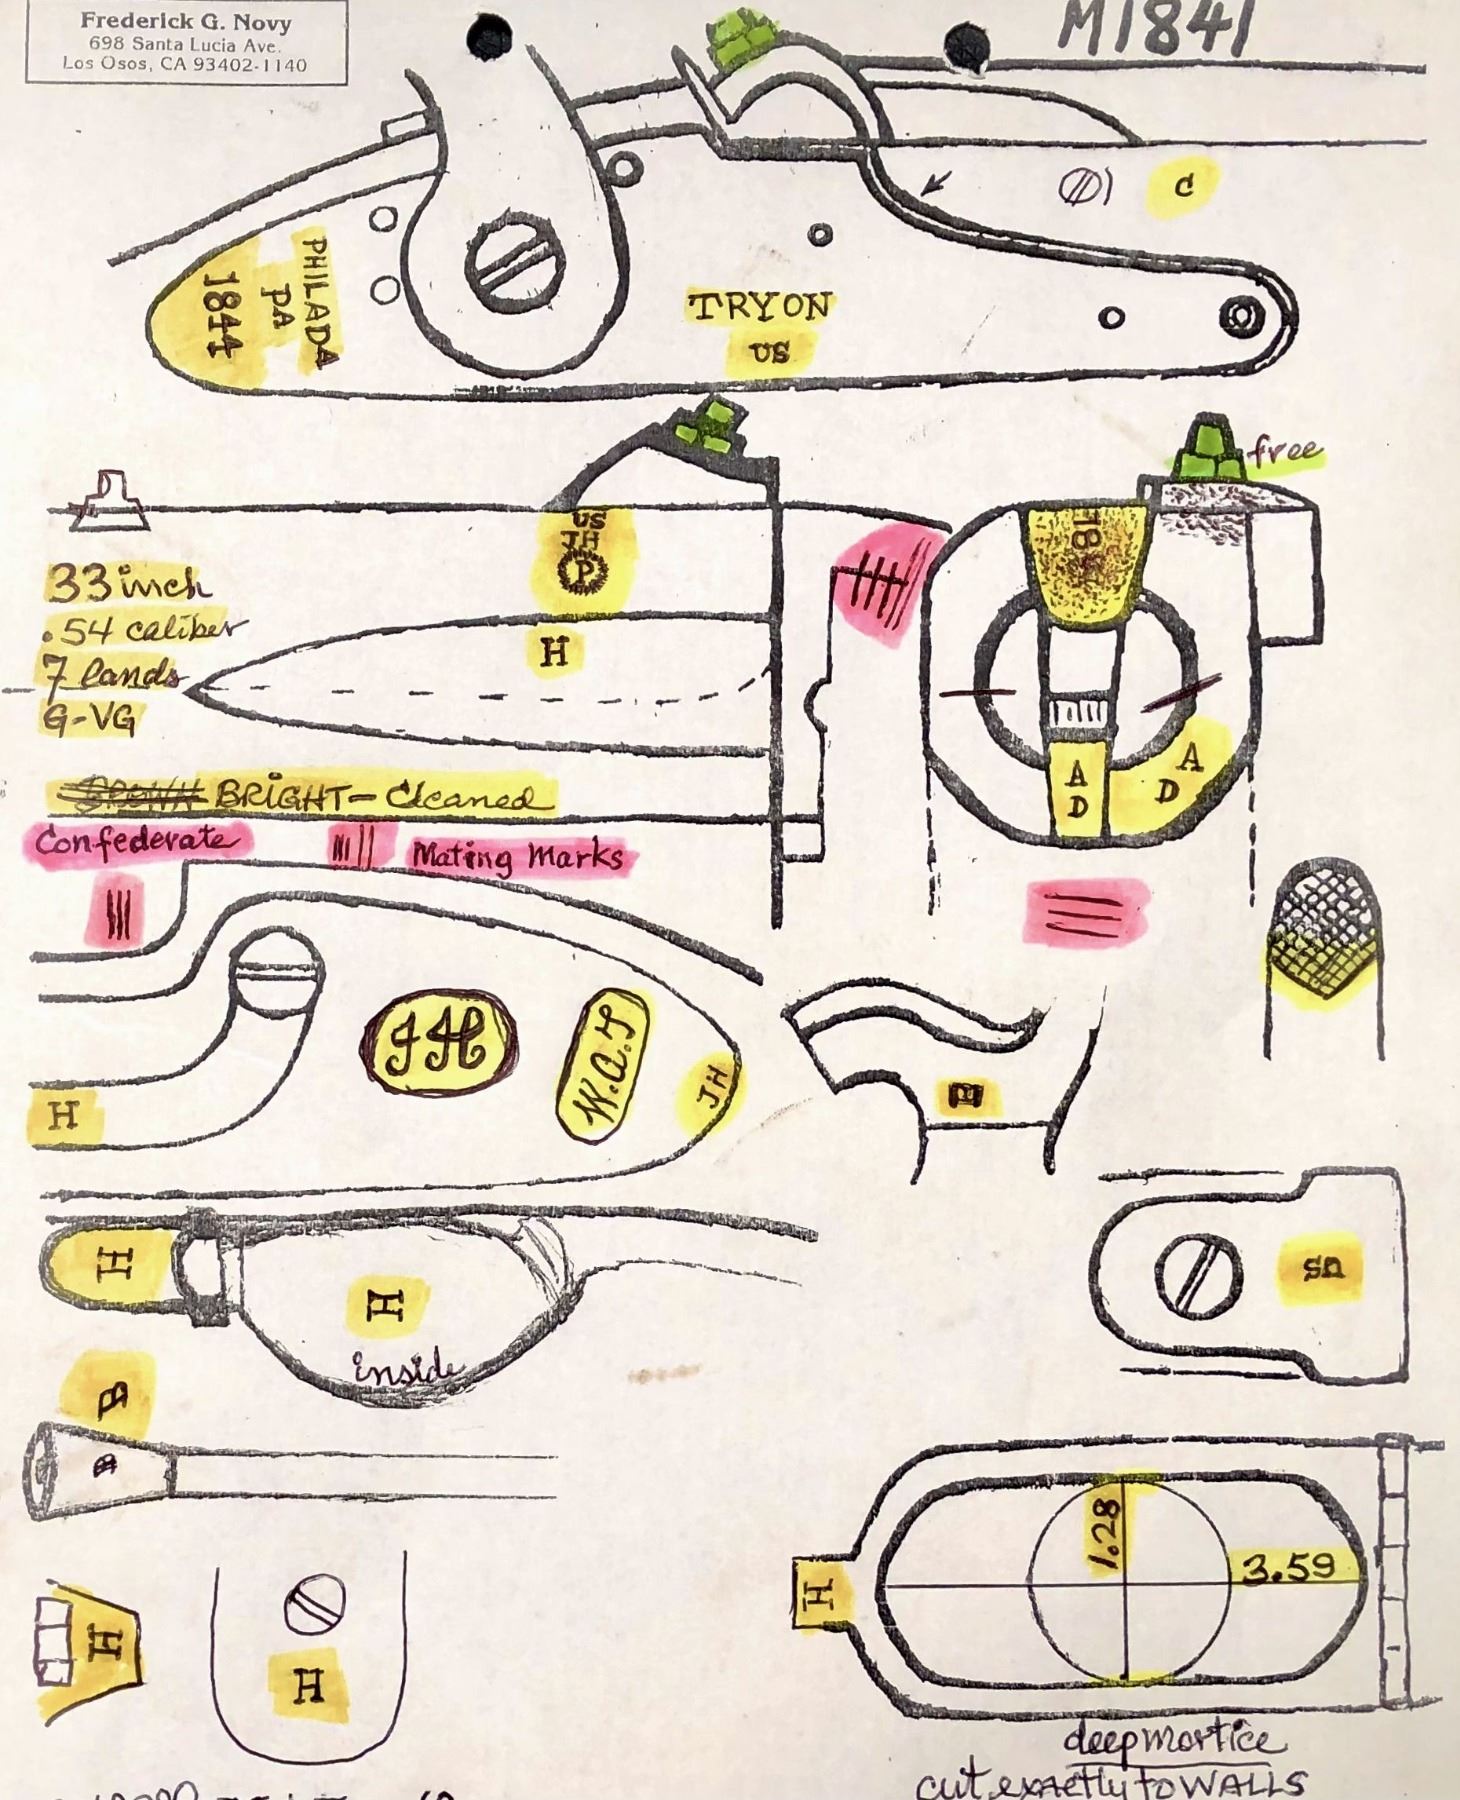 Frederick G. Novy
698 Santa Lucia Ave.
Los Osos, CA 93402-1140
M1841
C
PHILADA
PA
1844
TRYON
US
free
US
JH
P
33 inch
.54 caliber
7 lands
G-VG
H
A
D
A
D
BRIGHT - Cleaned
Confederate
Mating Marks
JH
W.A.T
JH
H
B
H
H
inside
US
B
B
1.28
3.59
H
H
H
deep mortice
cut exactly to WALLS